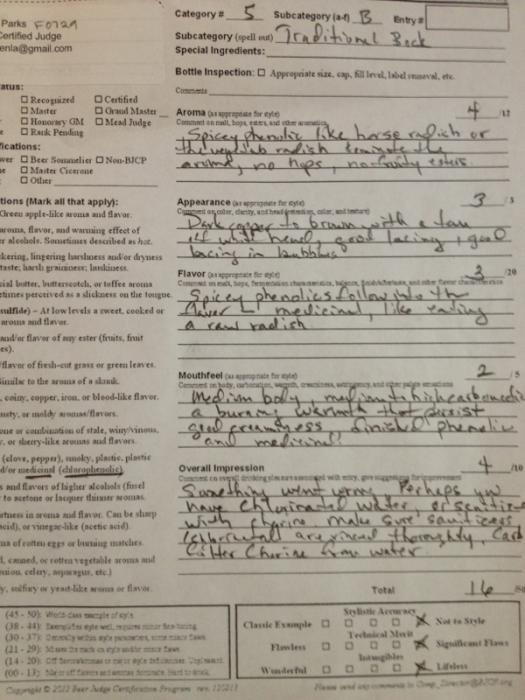 Category # 5 Subcategory (a-f) B Entry #
Parks F0729
Certified Judge
enla@gmail.com
Subcategory (spell out) Traditional Bock
Special Ingredients:
Bottle Inspection: ☐ Appropriate size, cap, fill level, label removal, etc.
Comments
atus:
☐ Recognized ☐ Certified
☐ Master ☐ Grand Master
☐ Honorary GM ☐ Mead Judge
☐ Rank Pending
fications:
☐ Beer Sommelier ☐ Non-BJCP
☐ Master Cicerone
☐ Other
Aroma (as appropriate for style) 4 /12
Comment on malt, hops, esters, and other aromatics
Spicey phenolic like horse radish or
the radish dominate the
aroma, no hops, no fruity esters
tions (Mark all that apply):
Green apple-like aroma and flavor.
aroma, flavor, and warming effect of
r alcohols. Sometimes described as hot.
kering, lingering harshness and/or dryness
taste; harsh graininess; huskiness.
cial butter, butterscotch, or toffee aroma
times perceived as a slickness on the tongue.
sulfide) – At low levels a sweet, cooked or
aroma and flavor.
and/or flavor of any ester (fruits, fruit
es).
flavor of fresh-cut grass or green leaves.
Similar to the aroma of a skunk.
, coiny, copper, iron, or blood-like flavor.
usty, or moldy aromas/flavors.
one or combination of stale, winy/vinous,
, or sherry-like aromas and flavors.
(clove, pepper), smoky, plastic, plastic
d/or medicinal (chlorophenolic).
s and flavors of higher alcohols (fusel
to acetone or lacquer thinner aromas.
artness in aroma and flavor. Can be sharp
acid), or vinegar-like (acetic acid).
ma of rotten eggs or burning matches.
d, canned, or rotten vegetable aroma and
nion, celery, asparagus, etc.)
y, sulfury or yeast-like aroma or flavor.
Appearance (as appropriate for style) 3 /3
Comment on color, clarity, and head (retention, color, and texture)
Dark copper to brown with a tan
off white head, good lacing, good
lacing in bubbles
Flavor (as appropriate for style) 3 /20
Spicey phenolics follow into the
flavor medicinal, like eating
a raw radish
Mouthfeel (as appropriate for style) 2 /5
Comment on body, carbonation, warmth, creaminess, astringency, and other palate sensations
Medium body, medium to high carbonation
a burning warmth that persist
good creamyness, finish phenolic
and medicinal
Overall Impression 4 /10
Something went wrong Perhaps you
have chlorinated water, or sanitize
with chlorine make sure sanitizers
are rinsed thoroughly, Carbon
filter Chlorine from water
Total 16 /50
(45 - 50):
(38 - 44):
(30 - 37):
(21 - 29):
(14 - 20):
(00 - 13):
Stylistic Accuracy
Classic Example ☐ ☐ ☐ ☐ X Not to Style
Technical Merit
Flawless ☐ ☐ ☐ ☐ X Significant Flaws
Intangibles
Wonderful ☐ ☐ ☐ ☐ X Lifeless
Copyright © 2012 Beer Judge Certification Program rev.